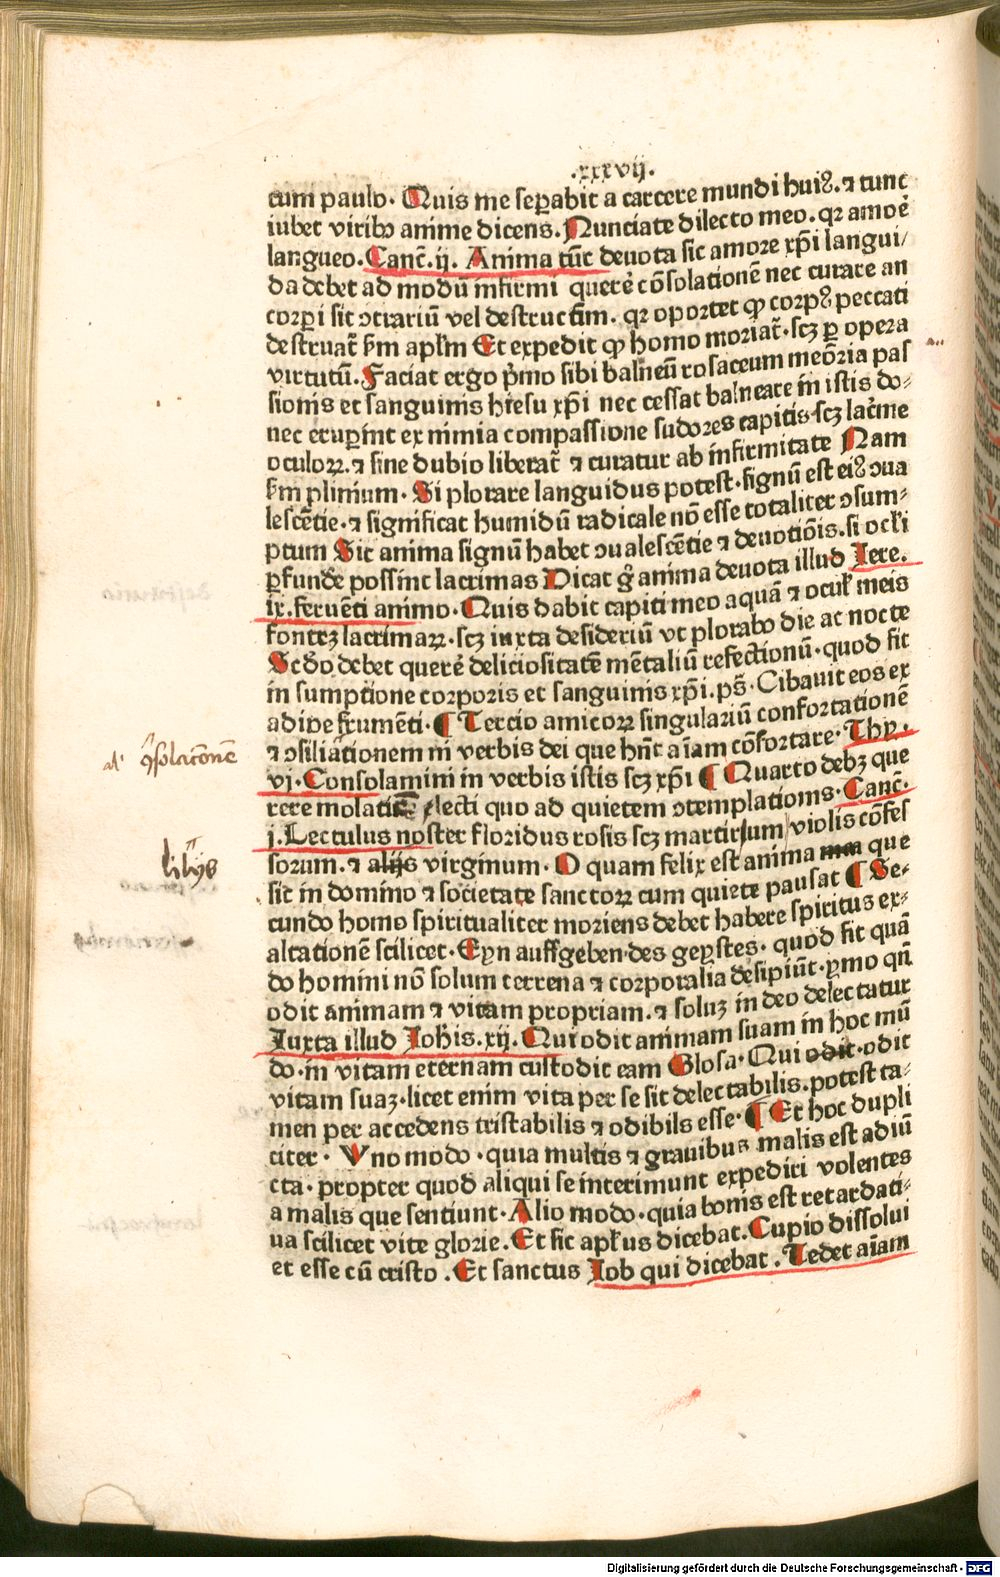 .xxxvij.
cum paulo. Quis me sepabit a carcere mundi huiꝰ. ⁊ tunc
iubet viribꝰ anime dicens. Nunciate dilecto meo. qꝛ amoē
langueo. Canc̄. ij. Anima tūc deuota sic amore xp̄i langui/
da debet ad modū infirmi querē ↄ̄solationē nec curare an
corpi sit ↄtrariū vel destructm̄. qꝛ oportet ꝙ corpꝰ peccati
destruat̄ ẜm apl̄m Et expedit ꝙ homo moriat̄. scꝫ ꝑ opera
virtutū. Faciat ergo p̄mo sibi balneū rosaceum meōria pas
sionis et sanguinis hiesu xp̄i nec cessat balneare in istis do-
nec erupint ex nimia compassione sudores capitis scꝫ lac̄me
oculoꝝ. ⁊ sine dubio liberat̄ ⁊ curatur ab infirmitate Nam
ẜm plinium. Si plorare languidus potest. signū est eiꝰ ↄua
lescētie. ⁊ significat humidū radicale nō esse totaliter ↄsum-
ptum Sic anima signū habet ↄualescētie ⁊ deuotiōis. si ocl̄i
ꝑfundē possint lacrimas Dicat g̊ anima deuota illud Iere.
ix. feruēti animo. Quis dabit capiti meo aquā ⁊ ocul̄ meis
fonteꝫ lacrimaꝝ. scꝫ iuxta desideriū vt plorabo die ac nocte
Scd̊o debet querē deliciositatē mētaliū refectionū. quod fit
in sumptione corporis et sanguinis xp̄i. ps̄. Cibauit eos ex
adipe frumēti. ¶ Tercio amicoꝝ singulariū confortationē
⁊ ↄsiliationem in verbis dei que hn̄t aīam cōfortare. Thy.
vj. Consolamini in verbis istis scꝫ xp̄i ¶ Quarto debꝫ que
rere molatiē lecti quo ad quietem ↄtemplationis. Canc̄.
j. Lectulus noster floridus rosis scꝫ martirium violis cōfes
sorum. ⁊ alijs virginum. O quam felix est anima mea que
sic in domino ⁊ societate sanctoꝝ cum quiete pausat ¶ Se-
cundo homo spiritualiter moriens debet habere spiritus ex-
altationē scilicet. Eyn auffgeben des geystes. quod fit quā
do homini nō solum terrena ⁊ corporalia desipiūt. pmo qn̄
odit animam ⁊ vitam propriam. ⁊ soluꝫ in deo delectatur
Iuxta illud Ioh̄is. xij. Qui odit animam suam in hoc mū
do. in vitam eternam custodit eam Glosa. Qui odit. odit
vitam suaꝫ. licet enim vita per se sit delectabilis. potest ta-
men per accedens tristabilis ⁊ odibils esse. ¶ Et hoc dupli
citer. Vno modo. quia multis ⁊ grauibus malis est adiū
cta. propter quod aliqui se interimunt expediri volentes
a malis que sentiunt. Alio modo. quia bonis est retardati-
ua scilicet vite glorie. Et sic apl̄us dicebat. Cupio dissolui
et esse cū cristo. Et sanctus Iob qui dicebat. Tedet aīam
al' ꝯsolacōnē
lilijs
Digitalisierung gefördert durch die Deutsche Forschungsgemeinschaft - DFG